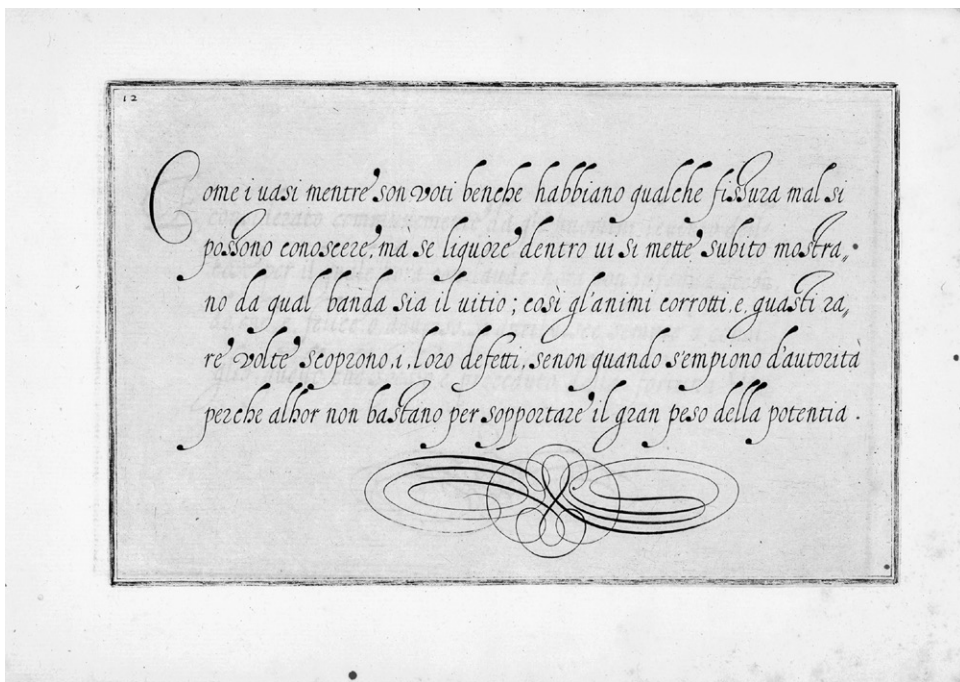 12
Come i uasi mentre son voti benche habbiano qualche fissura mal si
possono conoscere, mà se liquore dentro ui si mette subito mostra,,
no da qual banda sia il uitio; così gl'animi corrotti, e, guasti ra,,
re volte scoprono, i, loro defetti, senon quando s'empiono d'autorità
perche alhor non bastano per sopportare il gran peso della potentia.